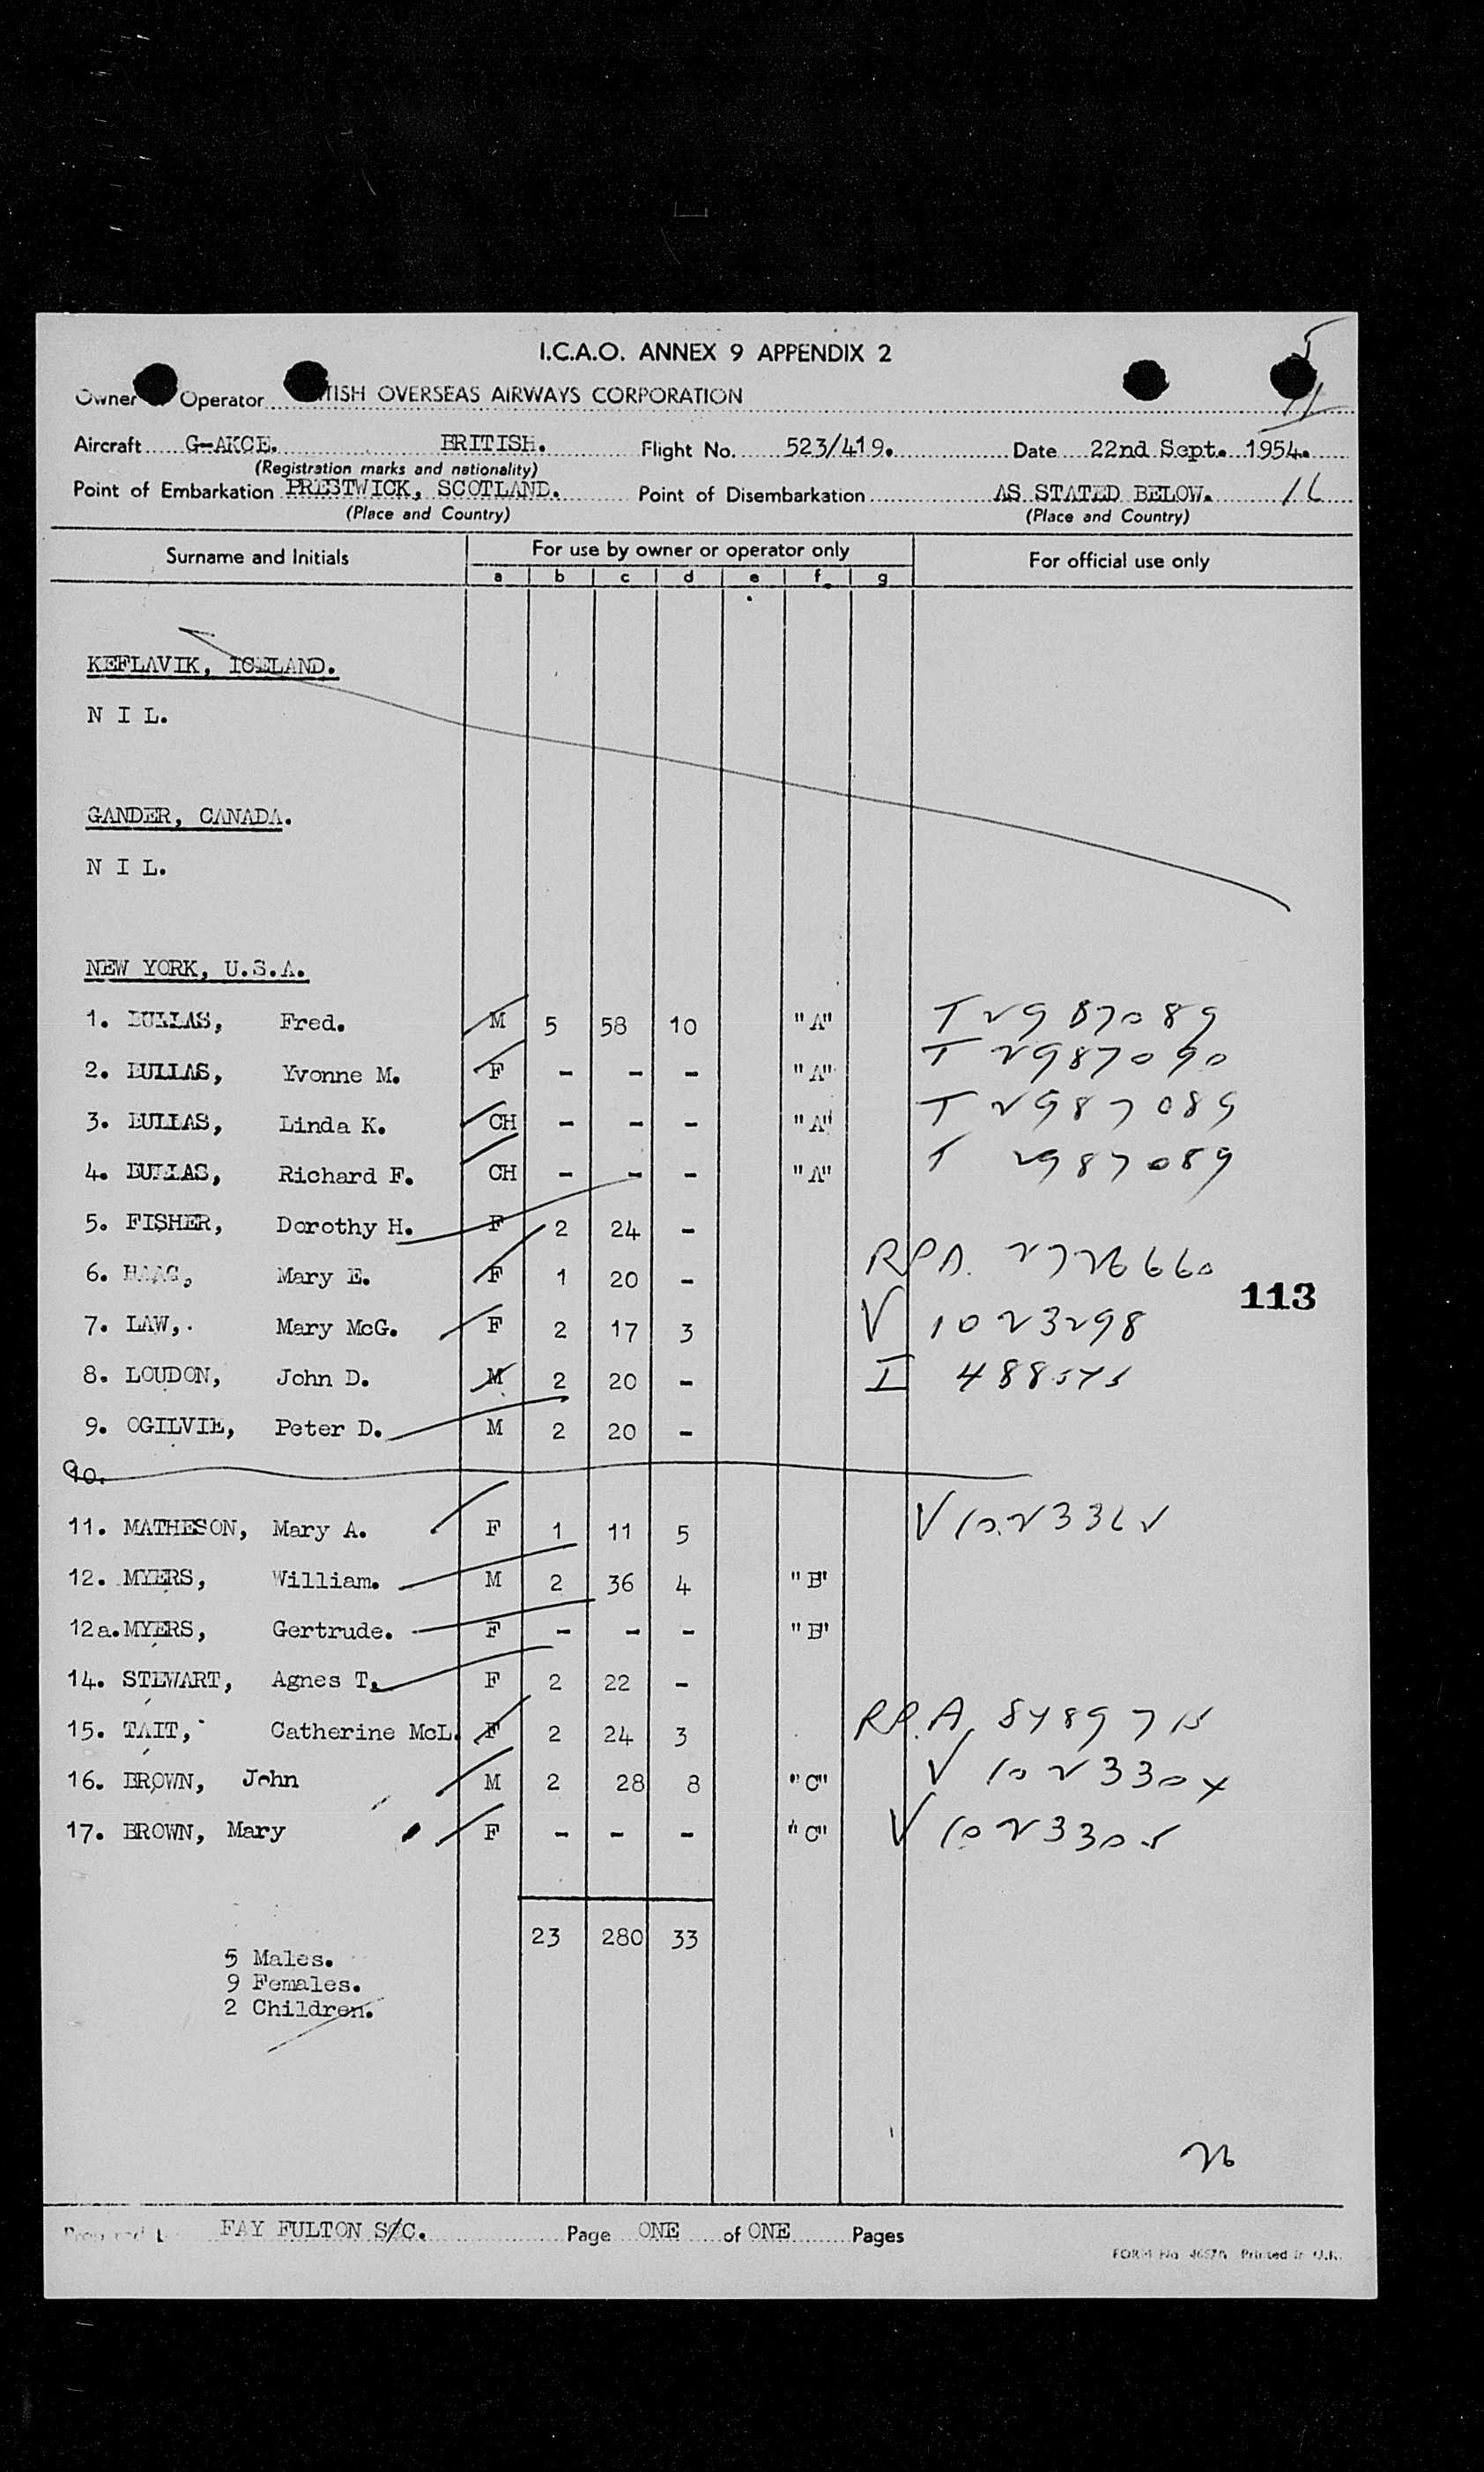 I.C.A.O. ANNEX 9 APPENDIX 2
Owner Operator TISH OVERSEAS AIRWAYS CORPORATION
Aircraft G-AKCE. BRITISH. Flight No. 523/419. Date 22nd Sept. 1954.
(Registration marks and nationality)
Point of Embarkation PRESTWICK, SCOTLAND. Point of Disembarkation AS STATED BELOW.
(Place and Country) (Place and Country)
Surname and Initials For use by owner or operator only For official use only
a b c d e f g
KEFLAVIK, ICELAND.
N I L.
GANDER, CANADA.
N I L.
NEW YORK, U.S.A.
1. BULLAS, Fred. M 5 58 10 "A" T 2987089
2. BULLAS, Yvonne M. F - - - "A" T 2987090
3. BULLAS, Linda K. CH - - - "A" T 2987089
4. BULLAS, Richard F. CH - - - "A" T 2987089
5. FISHER, Dorothy H. F 2 24 -
6. HAAG, Mary E. F 1 20 - RPA.
113
7. LAW, Mary McG. F 2 17 3 V 1023298
8. LOUDON, John D. M 2 20 - I
9. OGILVIE, Peter D. M 2 20 -
10.
11. MATHESON, Mary A. F 1 11 5 V
12. MYERS, William. M 2 36 4 "B"
12a. MYERS, Gertrude. F - - - "B"
14. STEWART, Agnes T. F 2 22 -
15. TAIT, Catherine McL. F 2 24 3 RP.A
16. BROWN, John M 2 28 8 "C" V
17. BROWN, Mary F - - - "C" V
23 280 33
5 Males.
9 Females.
2 Children.
26
FAY FULTON S/C. Page ONE of ONE Pages
FORM No Printed in U.K.